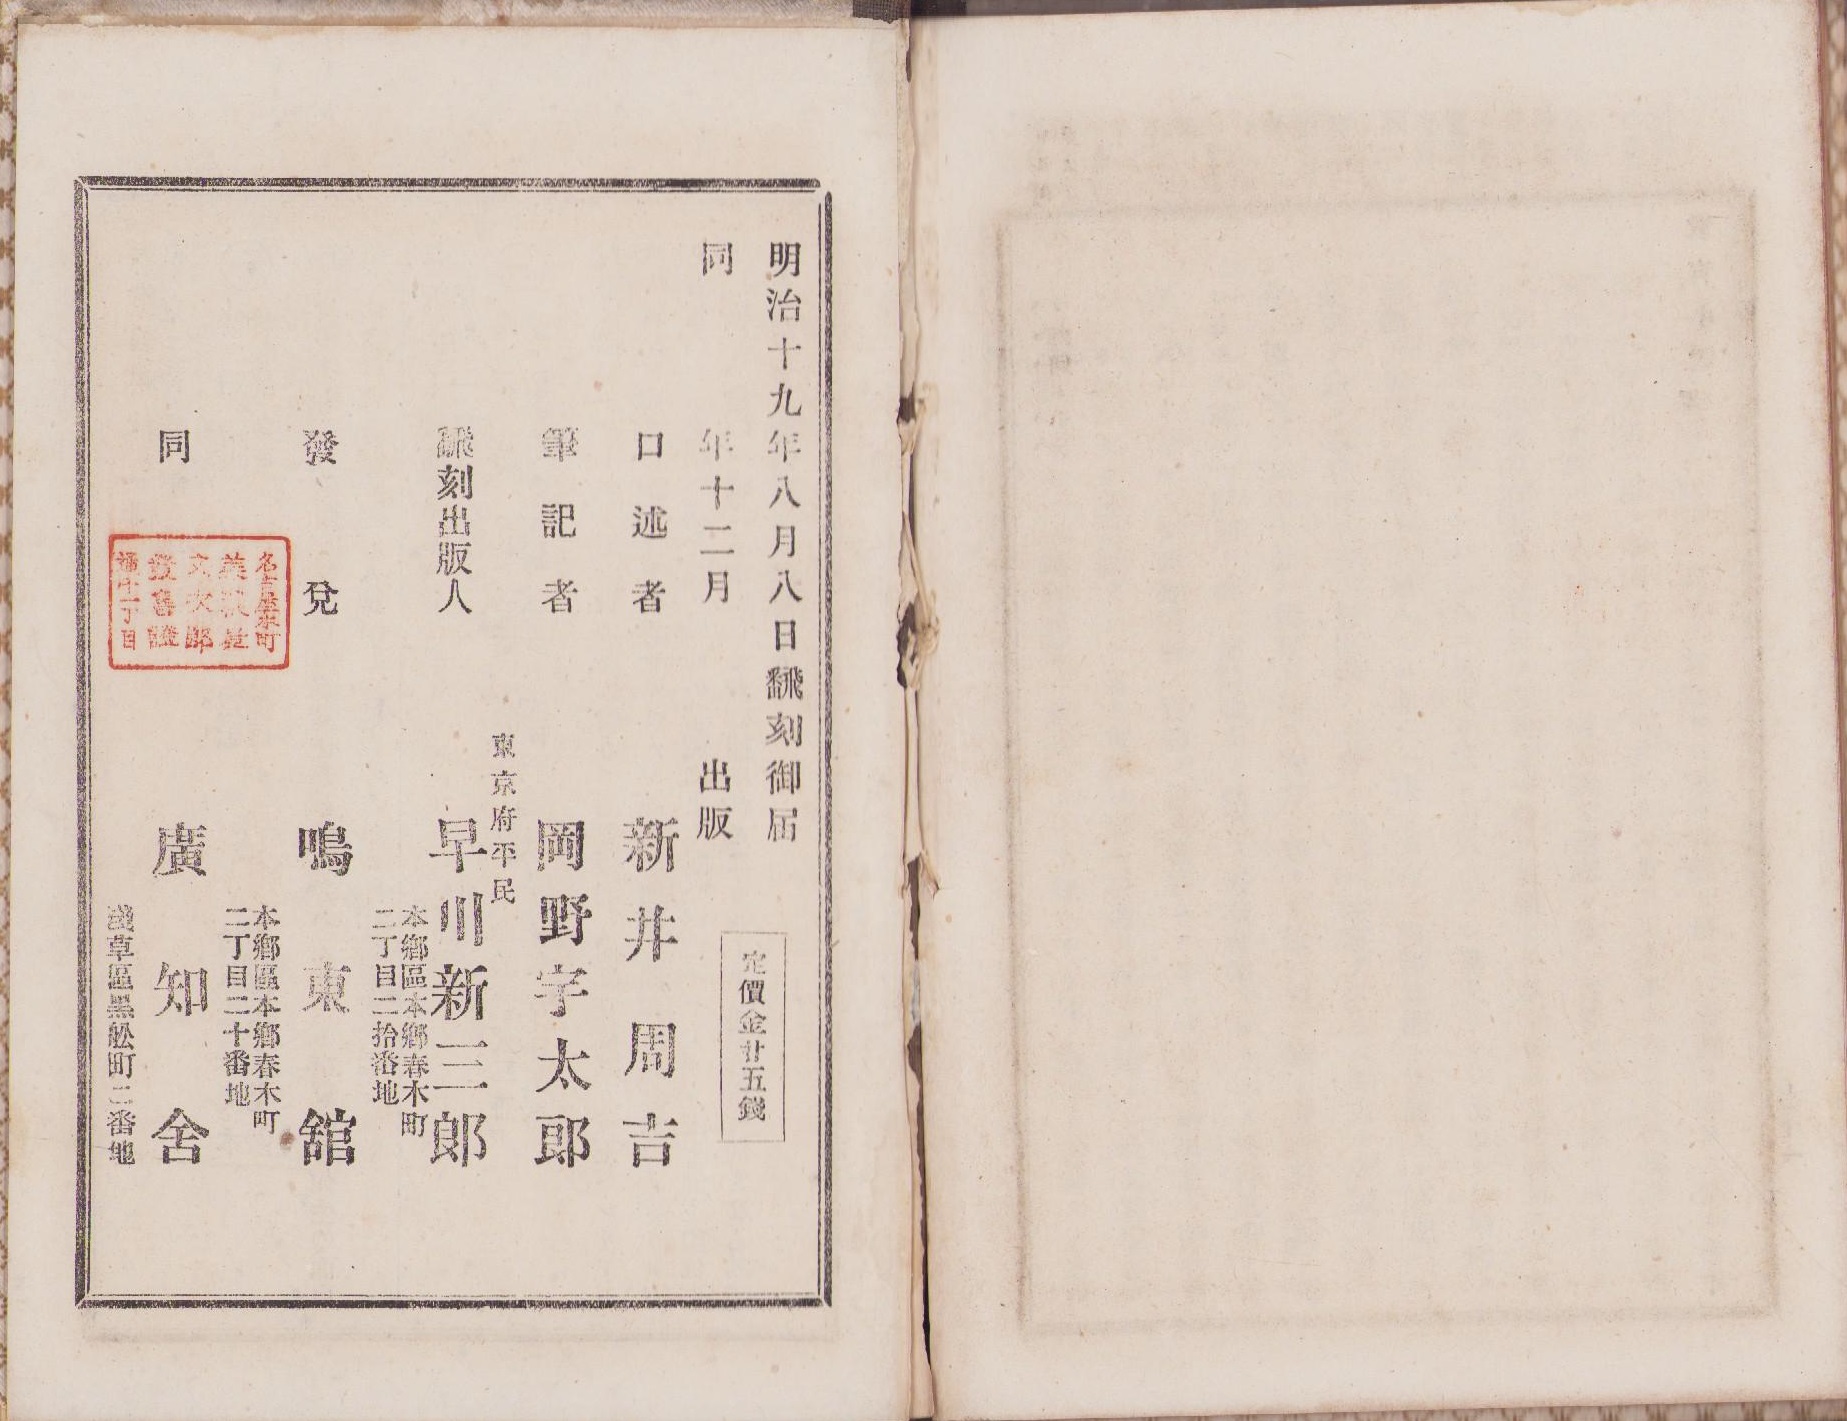 明治十九年八月八日飜刻御届
同年十二月出版
定價金廿五錢
口述者 新井周吉
筆記者 岡野宇太郎
東京府平民
飜刻出版人 早川新三郎
本鄕區本鄕春木町
二丁目二拾番地
發兌 鳴東舘
本鄕區本鄕春木町
二丁目二十番地
同 廣知舍
淺草區黑舩町二番地
名古屋本町
美濃社
文次郎
發售證
通十一丁目